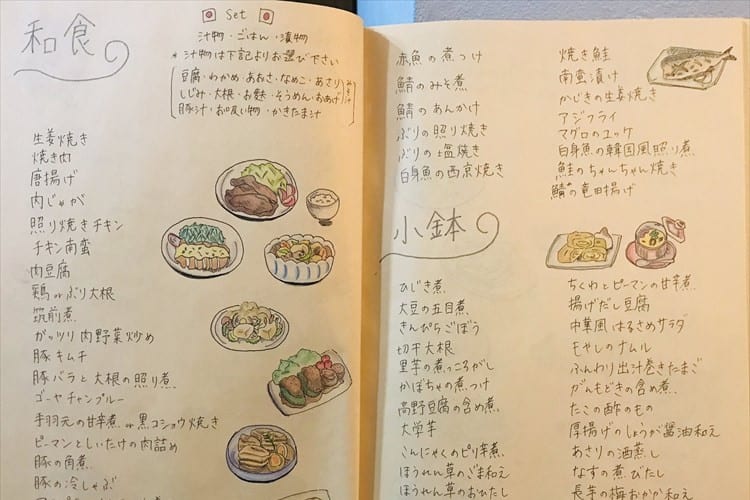 和食
Set
汁物・ごはん・漬物
*汁物は下記よりお選び下さい
豆腐・わかめ・あおさ・なめこ・あさり
しじみ・大根・お麩・そうめん・おあげ
みそ汁
豚汁・お吸い物・かきたま汁
生姜焼き
焼き肉
唐揚げ
肉じゃが
照り焼きチキン
チキン南蛮
肉豆腐
鶏orぶり大根
筑前煮
ガッツリ肉野菜炒め
豚キムチ
豚バラと大根の照り煮
ゴーヤチャンプルー
手羽元の甘辛煮or黒コショウ焼き
ピーマンとしいたけの肉詰め
豚の角煮
豚の冷しゃぶ
赤魚の煮つけ
鯖のみそ煮
鯖のあんかけ
ぶりの照り焼き
ぶりの塩焼き
白身魚の西京焼き
焼き鮭
南蛮漬け
かじきの生姜焼き
アジフライ
マグロのユッケ
白身魚の韓国風照り煮
鮭のちゃんちゃん焼き
鯖の竜田揚げ
小鉢
ひじき煮
大豆の五目煮
きんぴらごぼう
切干大根
里芋の煮っころがし
かぼちゃの煮つけ
高野豆腐の含め煮
大学芋
こんにゃくのピリ辛煮
ほうれん草のごま和え
ほうれん草のおひたし
ちくわとピーマンの甘辛煮
揚げだし豆腐
中華風はるさめサラダ
もやしのナムル
ふんわり出汁巻きたまご
がんもどきの含め煮
たこの酢のもの
厚揚げのしょうが醤油和え
あさりの酒蒸し
なすの煮びたし
長芋の梅おかか和え